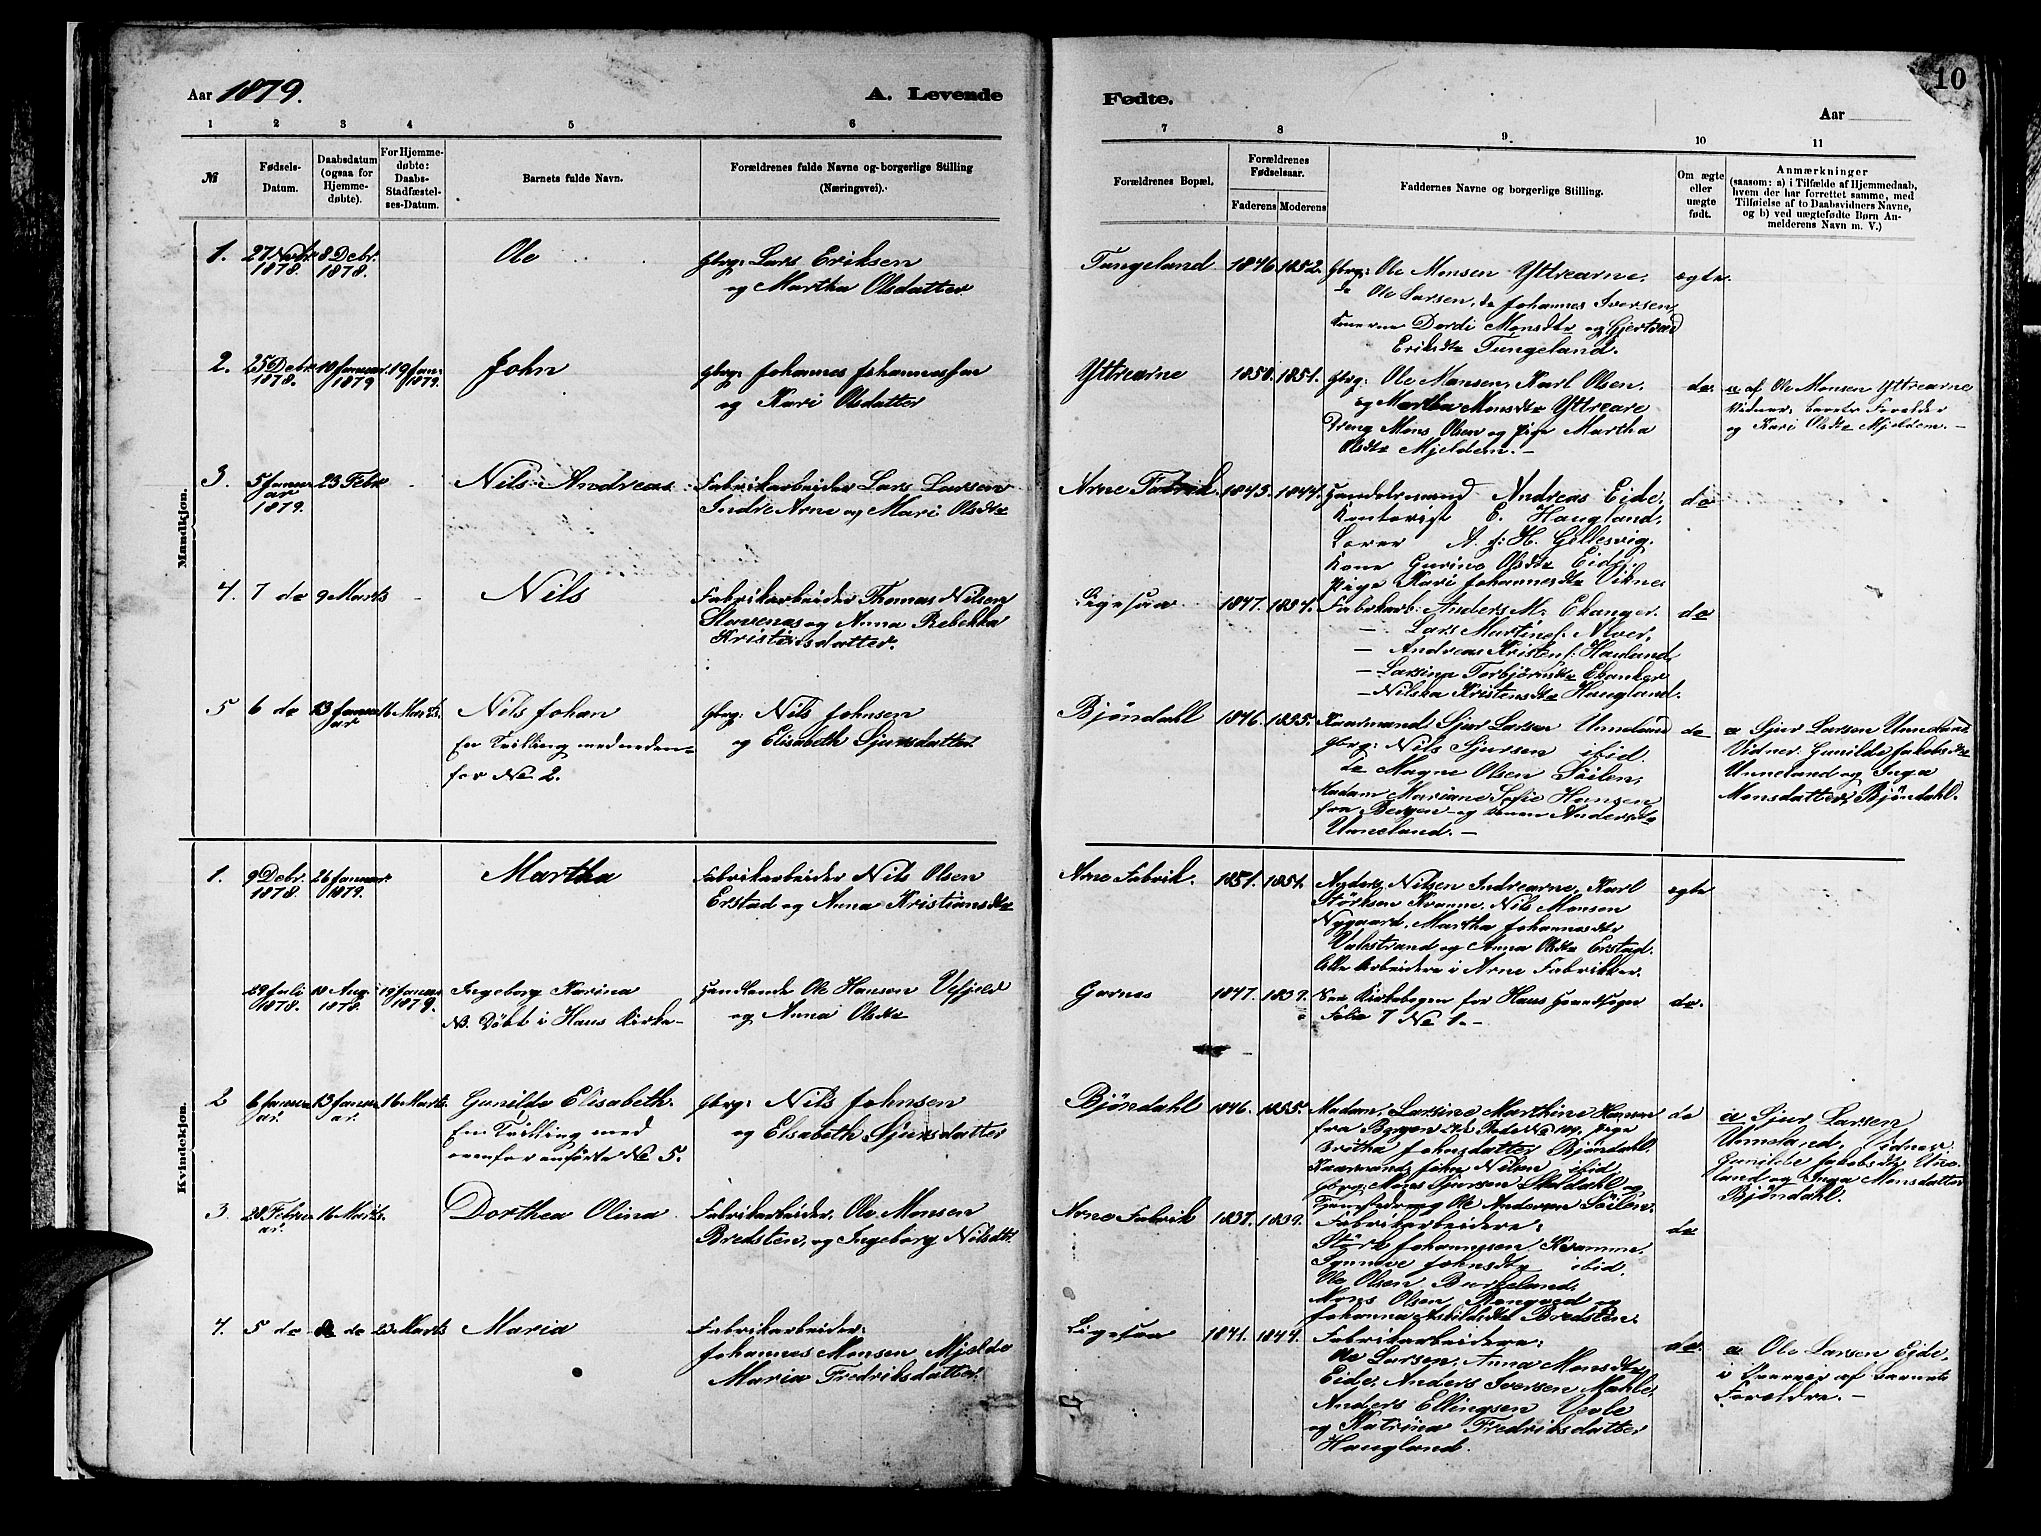 Aar 1879. A. Levende
1 2 3 4 5 6
№ Fødsels-Datum. Daabsdatum (ogsaa for Hjemme-døbte). For Hjemme-døbte: Daabs-Stadfæstel-ses-Datum. Barnets fulde Navn. Forældrenes fulde Navne og borgerlige Stilling (Næringsvei).
Mandkjøn.
1. 27 Novbr 1878. 8 Debr. 1878. Ole Gbrg: Lars Eriksen
og Martha Olsdatter
2. 25 Debr 1878. 10 Januar 1879 19 Jan. 1879. John Gbrg: Johannes Johannessen
og Kari Olsdatter
3. 5 Januar 1879. 23 Febr Nils Andreas Fabrikarbeider Lars Larsen
Indre Arne og Mari Olsdtr
4. 7 do 9 Marts Nils Fabrikarbeider Thomas Nilsen
og Anna Rebekka
Kristensdatter.
5 6 do 13 Januar 16 Marts. Nils Johan Gbrg: Nils Johnsen
En Tvilling med neden- og Elisabeth Sjursdatter
for No 2.
Kvindekjøn.
1. 9 Debr. 1878. 26 Januar 1879. Martha Fabrikarbeider Nils Olsen
Erstad og Anna Kristiansdtr
29 Juli 1878. 18 Aug 1878. 19 Januar 1879. Ingeborg Karina Handlende Ole Hansen
NB. Døbt i Haus Kirke- og Anna Olsdtr
2 6 Januar. 13 Januar. 16 Marts. Gunilde Elisabeth. Gbrg: Nils Johnsen
En Tvilling med og Elsabeth Sjursdatter
ovenfor anførte No 5.
3. 28 Februar. 16 Marts. Dorthea Olina Fabrikarbeider. Ole Monsen
Bredsten, og Ingeborg Nilsdtr.
4. 5 do do 23 Marts Maria Fabrikarbeider:
Johannes Monsen Mjelde
Maria Fredriksdatter.
Fødte. 10
Aar
7 8 9 10 11
Forældrenes Bopæl. Forældrenes Fødselsaar. Faderens Moderens Faddernes Navne og borgerlige Stilling. Om ægte eller uægte født. Anmærkninger
(saasom: a) i Tilfælde af Hjemmedaab,
hvem der har forrettet samme, med
Tilføielse af to Daabsvidners Navne,
og b) ved uægtefødte Børn An-
melderens Navn m. V.)
Tungeland 1846. 1852. Gbrg: Ole Monsen Yttrearne. ægte.
do Ole Larsen, do Johannes Iversen,
Konerne Dordi Monsdtr og Gjertrud
Eriksdtr Tungeland.
Yttrearne 1850. 1851. Gbrg: Ole Monsen, Karl Olsen. do. a af Ole Monsen Yttrearne
og Martha Monsdtr Yttreare Vidner, barets Forelder
Dreng Mons Olsen og pige Martha og Kari Olsdtr Mjeldem.-
Olsdtr Mjeldem.-
Arne Fabrik. 1843. 1844. Handelsmand Andreas Eide. do
Kontorist E. Haugland,
Lærer A. J: H. Gillesvig.
Kone Gurine Olsdtr Eide,
Pige Kari Johannesdtr Vikne.
Ligesaa 1847. 1854. Fabrkarb: Anders M: Ekanger. do
- Lars Martines: Alver,
- Andreas Kristens: Hauland,
- Larsine Torbjørnsdtr Ekanger
- Nilska Kristensdtr Haugland.
Bjøndahl 1846. 1855. Kaarmand Sjur Larsen Unneland do a Sjur Larsen Unneland,
Gbrg: Nils Sjursen ibid. Vidner. Gunilde Jakobsdtr
do Magne Olsen Söilen, Unneland og Inga
Madam Mariane Sofie Hansen Monsdatter Bjöndahl.
fra Bergen og Andersdtr
Unneland. -
Arne Fabrik. 1851. 1851. Anders Nilsen Indrearne, Karl ægte
Störksen Kvamme, Nils Monsen
Nygaard, Martha Johannesdtr
Vakstrand og Anna Olsdtr Erstad.
Alle Arbeidere i Arne Fabrikker.
Garnes 1847. 1839. Se Kirkebogen for Haus do.
Folie 7 No 1.-
Bjöndahl 1846. 1855. Madam, Larsine Marthine Hansen do a Sjur Larsen
fra Bergen pige Unneland, Vidner
Britha Johnsdatter Bjöndahl. Gunilde Jakobsdtr Une-
Kaarmand, John Nilsen ibid land og Inga Monsdatter
Gbrg: Mons Sjursen og Bjöndahl.
Ole Andersen Söilen.
Arne Fabrik 1837. 1839. Fabrikarbeidere: do
Störk Johannesen Kvamme.
Synneve Johnsdtr ibid.
Ole Olsen Burkeland.
Mons Olsen og
Johanna Bredsten.
Ligesaa 1841. 1844. Fabrikarbeidere: do. a Ole Larsen Eide.
Ole Larsen, Anna Monsdtr i Overvær af Barnets
Eide. Anders Iversen Mæhle Forældre. -
Anders Ellingsen
og Katrina Fredriksdatter
Haugland.